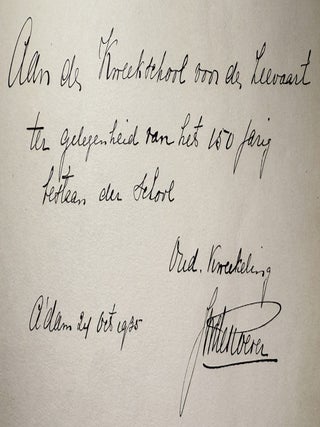 Aan de Kweekschool voor de Zeevaart
ter gelegenheid van het 150 jarig
bestaan der School
Oud. Kweekeling
A'dam 24 Oct 1935